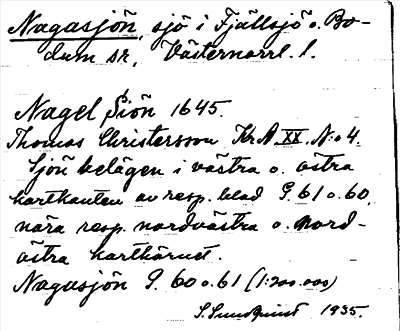 Nagasjön, sjö i Fjällsjö o. Bo-
dum sn, Västernorrl. l.
Nagel Siön 1645.
Thomas Christersson KrA XX. N:o 4.
Sjön belägen i västra o. östra
kartkanten av resp. blad G. 61 o. 60,
nära resp. nordvästra o. nord-
östra karthörnet.
Nagasjön G. 60 o. 61 (1:200.000)
S. Sundquist 1935.